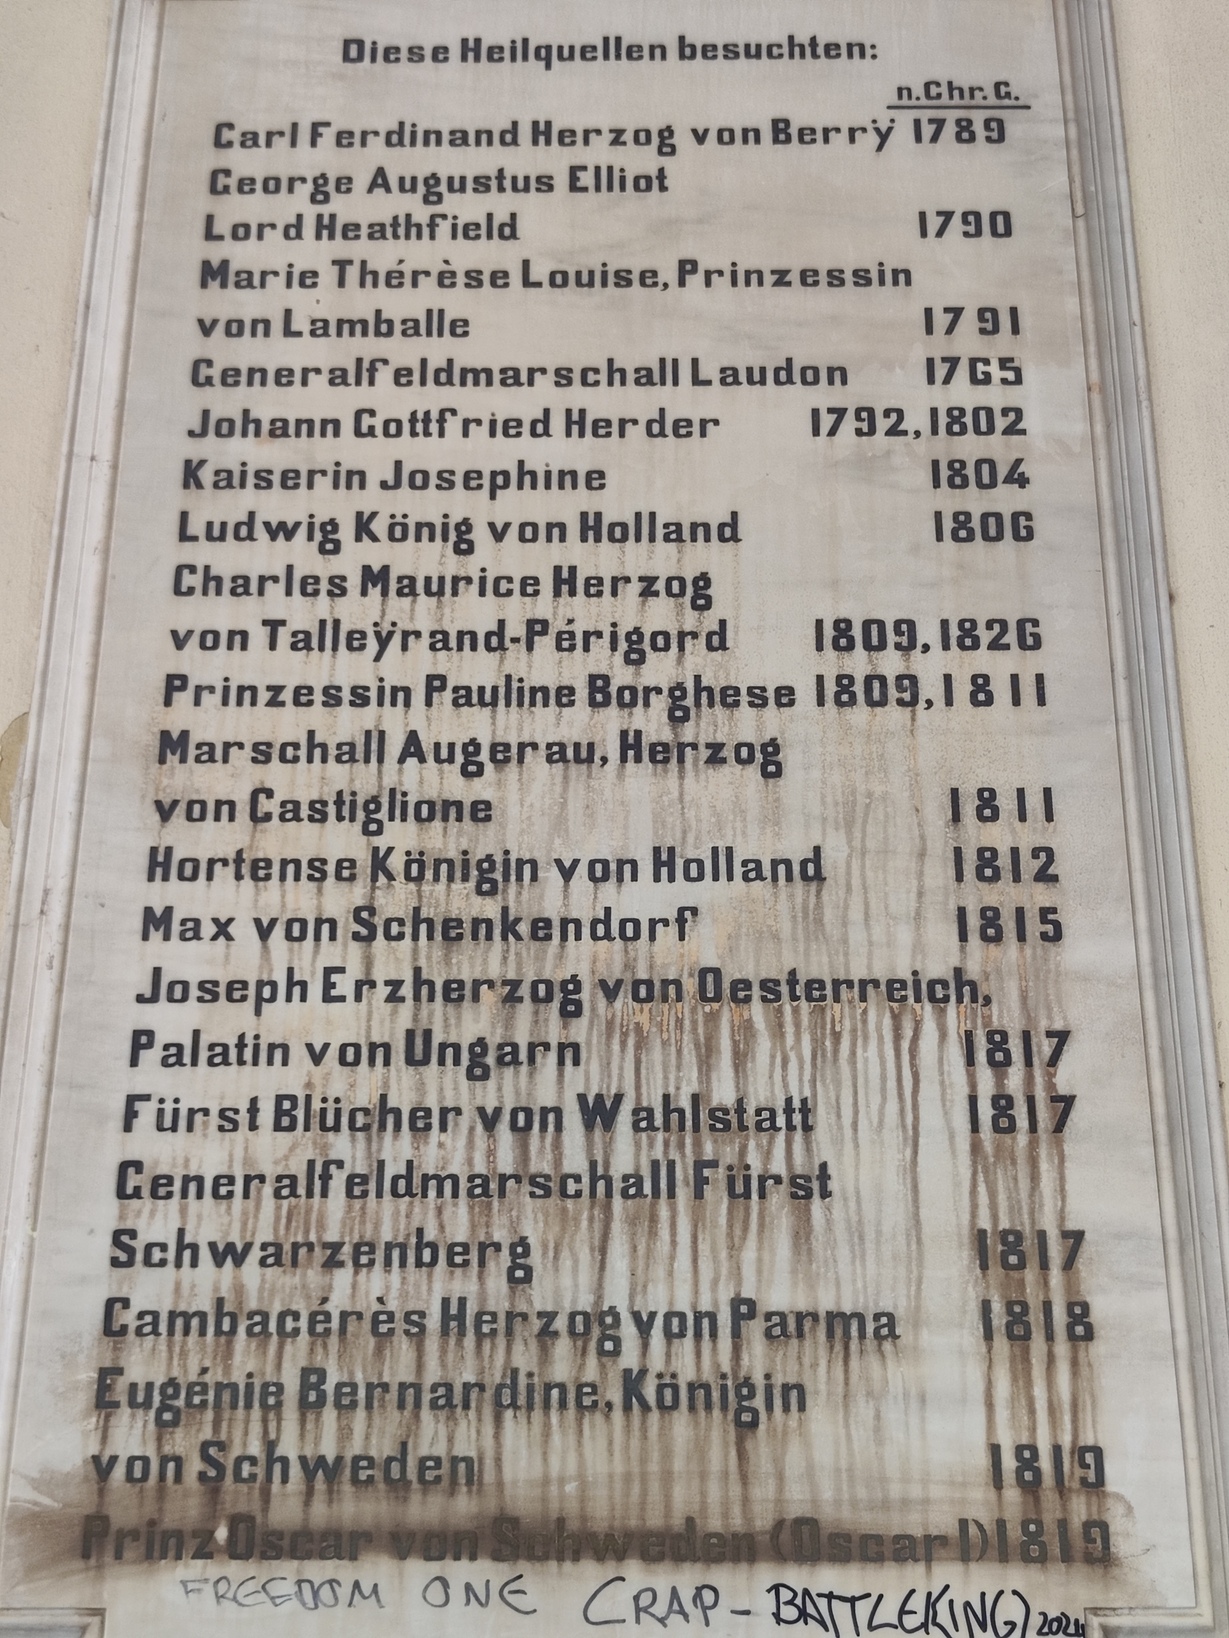 Diese Heilquellen besuchten:
n.Chr.G.
Carl Ferdinand Herzog von Berrÿ 1789
George Augustus Elliot
Lord Heathfield 1790
Marie Thérèse Louise, Prinzessin
von Lamballe 1791
Generalfeldmarschall Laudon 1765
Johann Gottfried Herder 1792, 1802
Kaiserin Josephine 1804
Ludwig König von Holland 1806
Charles Maurice Herzog
von Talleÿrand-Périgord 1809, 1826
Prinzessin Pauline Borghese 1809, 1811
Marschall Augerau, Herzog
von Castiglione 1811
Hortense Königin von Holland 1812
Max von Schenkendorf 1815
Joseph Erzherzog von Oesterreich,
Palatin von Ungarn 1817
Fürst Blücher von Wahlstatt 1817
Generalfeldmarschall Fürst
Schwarzenberg 1817
Cambacérès Herzog von Parma 1818
Eugénie Bernardine, Königin
von Schweden 1819
Prinz Oscar von Schweden (Oscar I) 1819
FREEDOM ONE (RAP-BATTLEKING) 2024